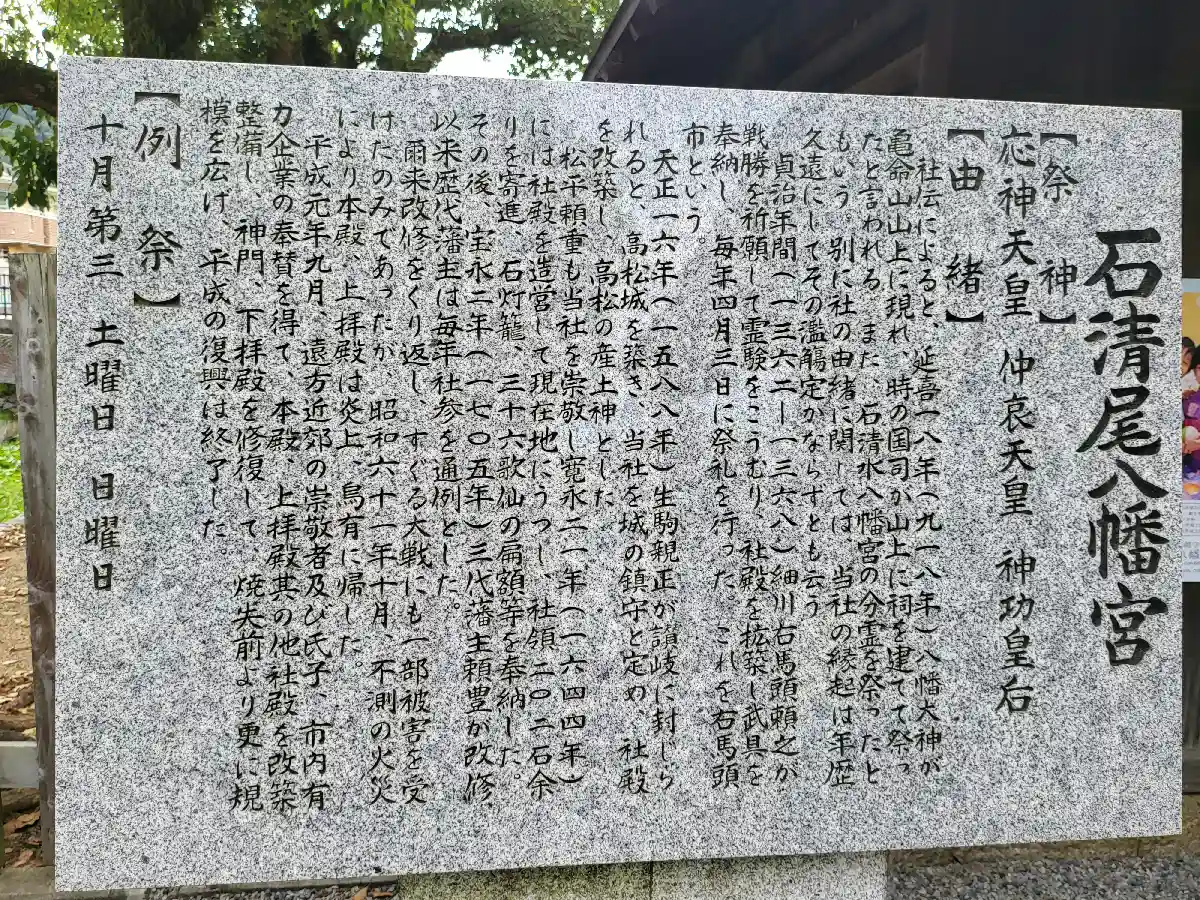 石清尾八幡宮
【祭神】
応神天皇 仲哀天皇 神功皇后
【由緒】
社伝によると、延喜一八年(九一八年)八幡大神が
亀命山山上に現れ、時の国司が山上に祠を建てて祭っ
たと言われる。また、石清水八幡宮の分霊を祭ったと
もいう。別に社の由緒に関しては、当社の縁起は年歴
久遠にしてその濫觴定かならずとも云う。
貞治年間(一三六二—一三六八)細川右馬頭頼之が
戦勝を祈願して霊験をこうむり、社殿を拡築し武具を
奉納し、毎年四月三日に祭礼を行った。これを右馬頭
市という。
天正一六年(一五八八年)生駒親正が讃岐に封じら
れると、高松城を築き、当社を城の鎮守と定め、社殿
を改築し、高松の産土神とした。
松平頼重も当社を崇敬し寛永二一年(一六四四年)
には社殿を造営して現在地にうつし、社領二〇二石余
りを寄進、石灯籠、三十六歌仙の扁額等を奉納した。
その後、宝永二年(一七〇五年)三代藩主頼豊が改修
以来歴代藩主は毎年社参を通例とした。
爾来改修をくり返し、すぐる大戦にも一部被害を受
けたのみであったが、昭和六十一年十月、不測の火災
により本殿、上拝殿は炎上、烏有に帰した。
平成元年九月、遠方近郊の崇敬者及び氏子、市内有
力企業の奉賛を得て、本殿、上拝殿其の他社殿を改築
整備し、神門、下拝殿を修復して、焼失前より更に規
模を広げ、平成の復興は終了した。
【例祭】
十月第三 土曜日 日曜日